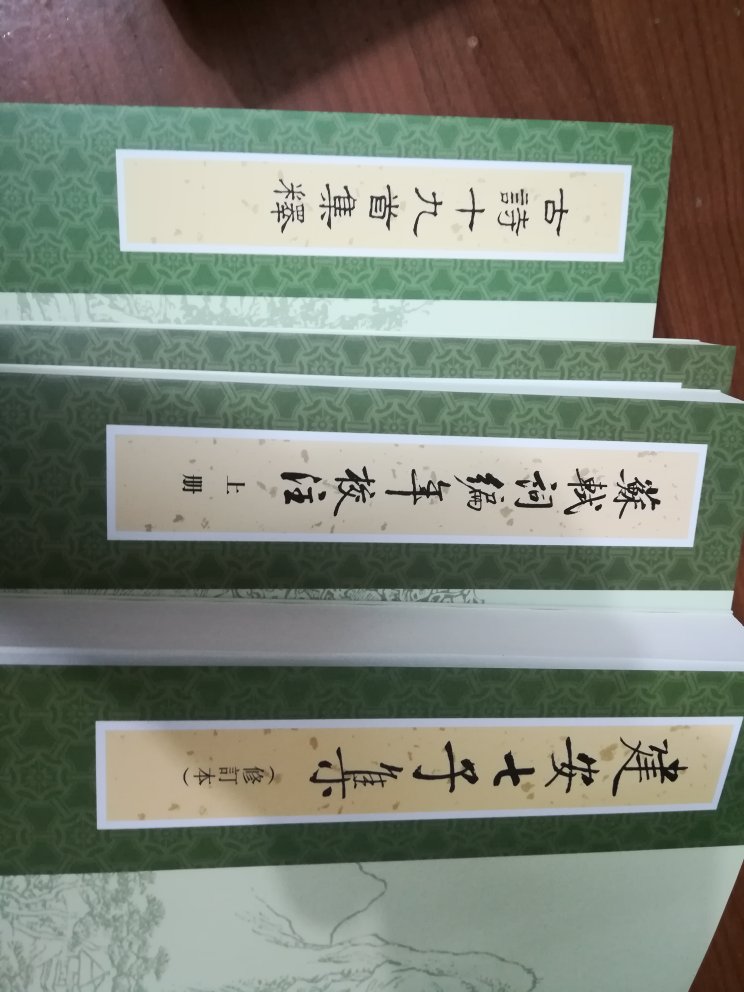 古詩十九首集釋
蘇軾词編年校注
上册
建安七子集
（修訂本）